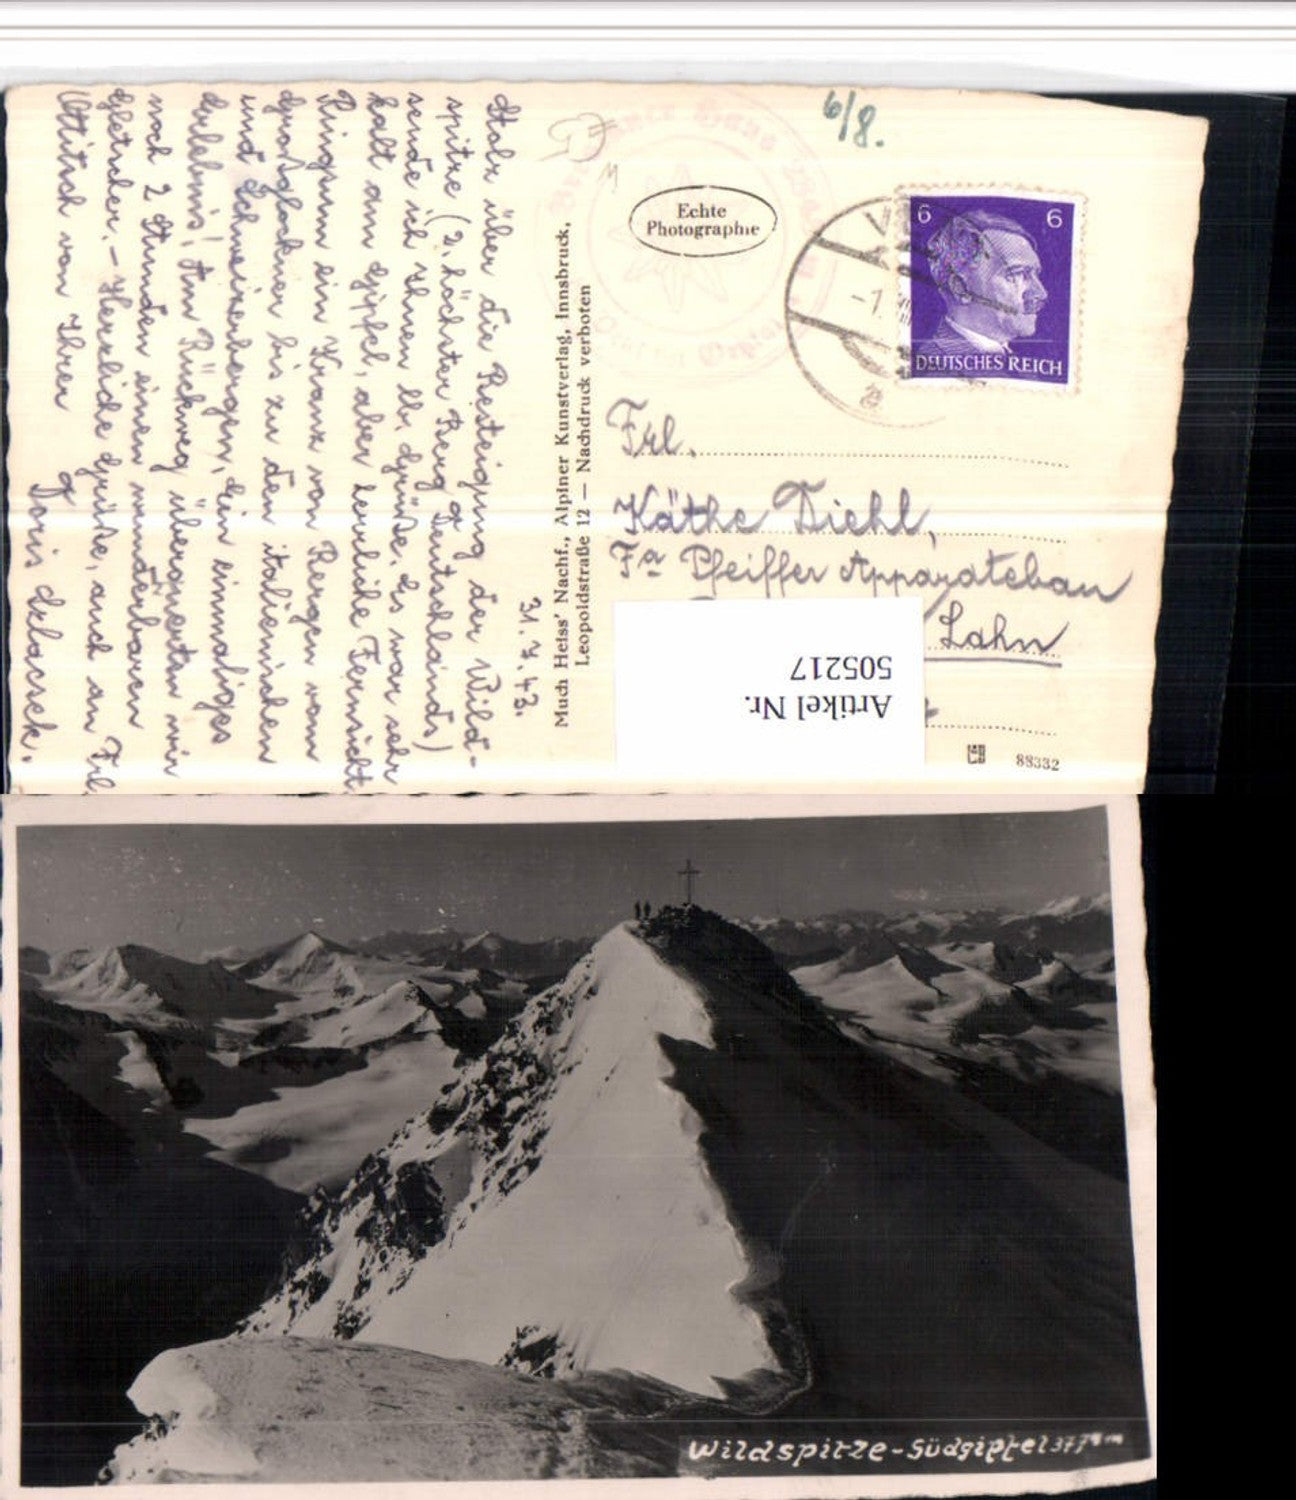 31.7.43.
Stolz über die Besteigung der Wild-
spitze (2. höchster Berg Deutschlands)
sende ich Ihnen lb. Grüße. Es war sehr
kalt am Gipfel, aber herrliche Fernsicht.
Ringsum ein Kranz von Bergen vom
Großglockner bis zu den italienischen
und Schweizerbergen, ein einmaliges
Erlebnis! Am Rückweg überquerten wir
noch 2 Stunden einen wunderbaren
Gletscher. – Herzliche Grüße, auch an Frl.
von Ihrer
Doris
Much Heiss' Nachf., Alpiner Kunstverlag, Innsbruck,
Leopoldstraße 12 — Nachdruck verboten
6/8.
Echte
Photographie
6 6
DEUTSCHES REICH
-1.
Frl.
Käthe Diehl,
Fa Pfeiffer Apparatebau
Lahn
Artikel Nr.
505217
88332
Wildspitze-Südgipfel